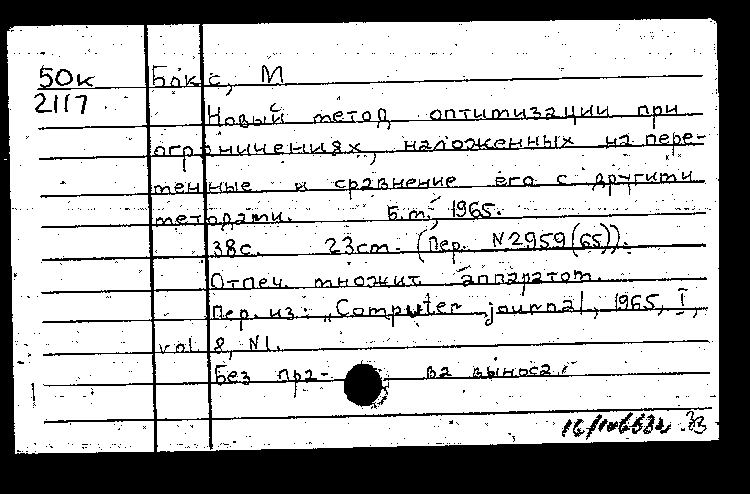 50к Бокс, М
2117
Новый метод оптимизации при
ограничениях, наложенных на пере-
менные и сравнение его с другими
методами. Б.м., 1965.
38с. 23см. (Пер. N2959(65)).
Отпеч. множит. аппаратом.
Пер. из: „Computer journal, 1965, I,
vol 8, N1.
Без пра- ва выноса.